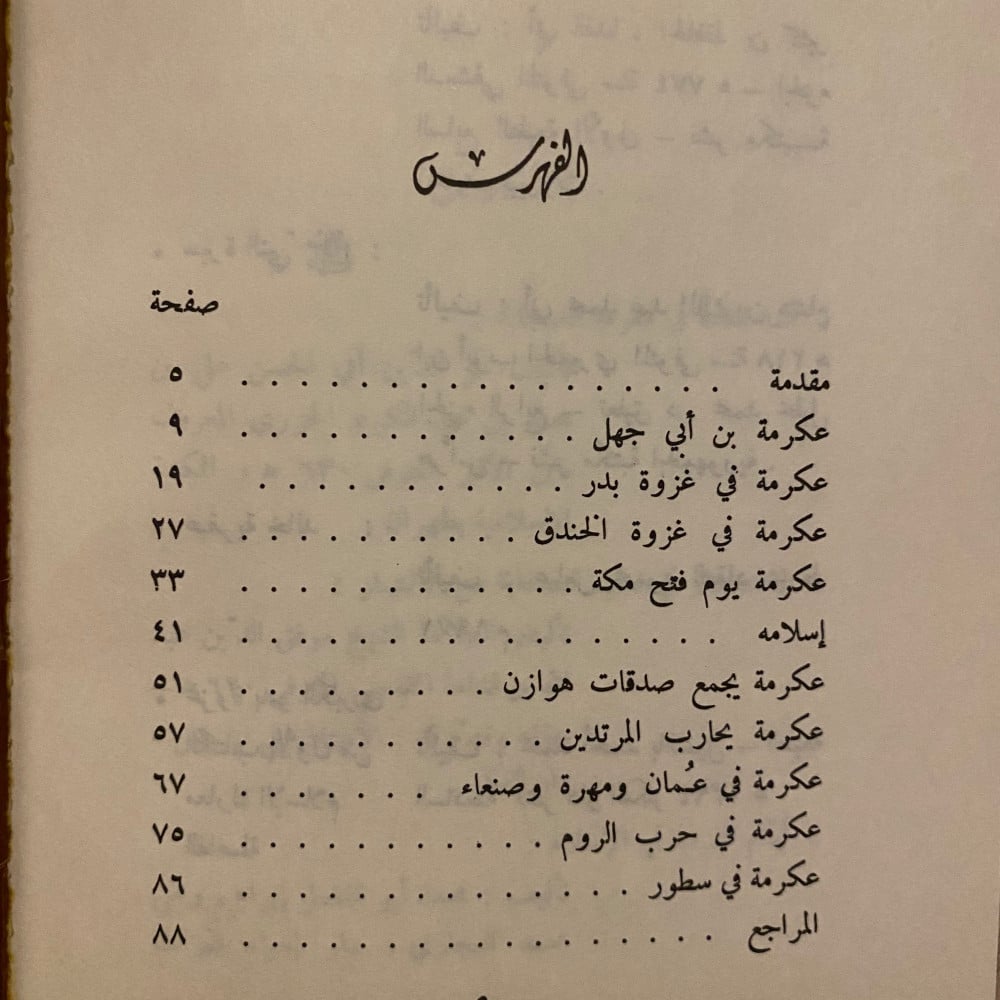 الفهرس
صفحة
مقدمة . . . . . . . . . . . . . . . . . ٥
عكرمة بن أبي جهل . . . . . . . . . . . . ٩
عكرمة في غزوة بدر . . . . . . . . . . . ١٩
عكرمة في غزوة الخندق . . . . . . . . . . ٢٧
عكرمة يوم فتح مكة . . . . . . . . . . . . ٣٣
إسلامه . . . . . . . . . . . . . . . . . ٤١
عكرمة يجمع صدقات هوازن . . . . . . . . . ٥١
عكرمة يحارب المرتدين . . . . . . . . . . . ٥٧
عكرمة في عُمان ومهرة وصنعاء . . . . . . . ٦٧
عكرمة في حرب الروم . . . . . . . . . . . ٧٥
عكرمة في سطور . . . . . . . . . . . . . . ٨٦
المراجع . . . . . . . . . . . . . . . . . ٨٨